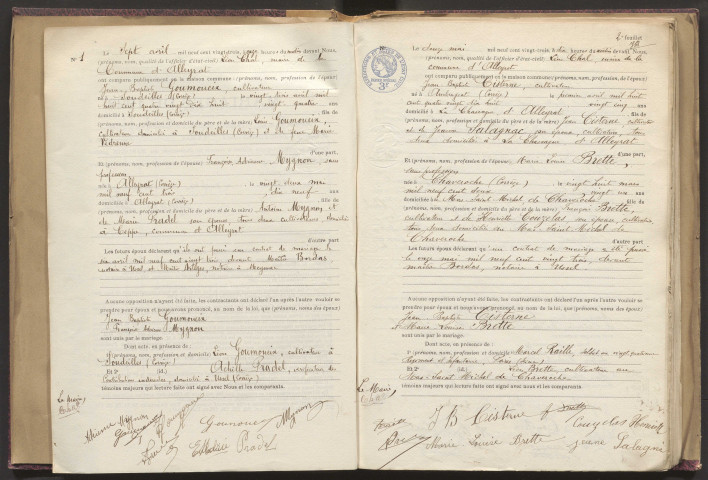 N° 1
Le sept avril mil neuf cent vingt-trois, onze heures du matin devant Nous,
(prénoms, nom, qualité de l'officier d'état-civil) Léon Chat, maire de la
Commune d'Alleyrat
ont comparu publiquement en la maison commune : (prénoms, nom, profession de l'époux)
Jean Baptiste Goumouein, cultivateur
né à Soudeilles (Corrèze) le vingt trois avril mil
huit cent quatre vingt dix huit vingt quatre ans
domicilié à Soudeilles (Corrèze) fils de
(prénoms, nom, profession et domicile des père et mère) Léon Goumouein,
cultivateur domicilié à Soudeilles (Corrèze) et de feue Marie
d'une part.
Et (prénoms, nom, profession de l'épouse) Françoise Adrienne Mygnon sans
profession
née à Alleyrat (Corrèze) le vingt deux mai
mil neuf cent trois dix neuf ans
domiciliée à Alleyrat (Corrèze) fille de
(prénoms, nom, profession et domicile des père et mère) Antoine Mygnon et
de Marie Pradel son épouse, tous deux cultivateurs, domiciliés
à Cappe, commune d'Alleyrat
d'autre part
Les futurs époux déclarent qu'ils ont passé un contrat de mariage le
six avril mil neuf cent vingt trois, devant Maître Bordas
notaire à Ussel et Maître notaire à Meymac
Aucune opposition n'ayant été faite, les contractants ont déclaré l'un après l'autre vouloir se
prendre pour époux et nous avons prononcé, au nom de la loi, que (prénoms, noms des époux)
Jean Baptiste Goumouein
Françoise Adrienne Mygnon
sont unis par le mariage.
Dont acte, en présence de :
1° (prénoms, nom, profession et domicile) Léon Goumouein, cultivateur à
Soudeilles (Corrèze)
Et 2° (id.) Achille Pradel,
Contributions indirectes, domicilié à Ussel (Corrèze)
témoins majeurs qui lecture faite ont signé avec Nous et les comparants.
Le Maire,
Chat
Adrienne Mygnon
Goumouein
Mygnon
Pradel
2e feuillet
N° 2
Le douze mai mil neuf cent vingt-trois à dix heures du matin devant Nous,
(prénoms, nom, qualité de l'officier d'état-civil) Léon Chat, maire de la
commune d'Alleyrat
ont comparu publiquement en la maison commune : (prénoms, nom, profession de l'époux)
Jean Baptiste Cisterne, cultivateur
né à (Corrèze) le premier avril mil huit
cent quatre vingt dix huit vingt cinq ans
domicilié à La Chassagne d'Alleyrat fils de
(prénoms, nom, profession et domicile des père et mère) Jean Cisterne cultivateur
et de Jeanne Salagnac son épouse cultivatrice, tous
deux domiciliés à La Chassagne d'Alleyrat
d'une part,
Et (prénoms, nom, profession de l'épouse) Marie Louise Brette,
sans profession
née à Chaveroche (Corrèze) le vingt huit mars
mil neuf cent deux vingt un ans
domiciliée au Mas Saint Michel de Chaveroche fille de
(prénoms, nom, profession et domicile des père et mère) François Brette,
cultivateur et de Henriette Couzelas, son épouse, cultivatrice
tous deux domiciliés au Mas Saint Michel de
Chaveroche
d'autre part
Les futurs époux déclarent qu'un contrat de mariage a été passé
le onze mai mil neuf cent vingt trois, devant
maître Bordas, notaire à Ussel
Aucune opposition n'ayant été faite, les contractants ont déclaré l'un après l'autre vouloir se
prendre pour époux et nous avons prononcé, au nom de la loi, que (prénoms, noms des époux)
Jean Baptiste Cisterne
& Marie Louise Brette
sont unis par le mariage.
Dont acte, en présence de :
1° (prénoms, nom, profession et domicile) Marcel Raille,
Régiment d'infanterie,
Et 2° (id.) Brette cultivateur au
Mas Saint Michel de Chaveroche
témoins majeurs qui lecture faite ont signé avec Nous et les comparants.
Le Maire,
Chat
J B Cisterne
Brette
Couzelas Henriette
Marie Louise Brette
Jeanne Salagnac